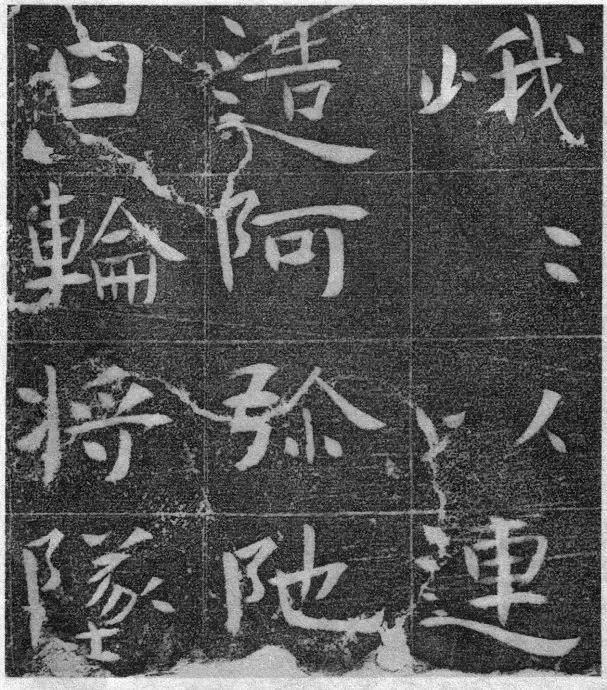 峨〻人連
造阿弥陁
白輪將墜